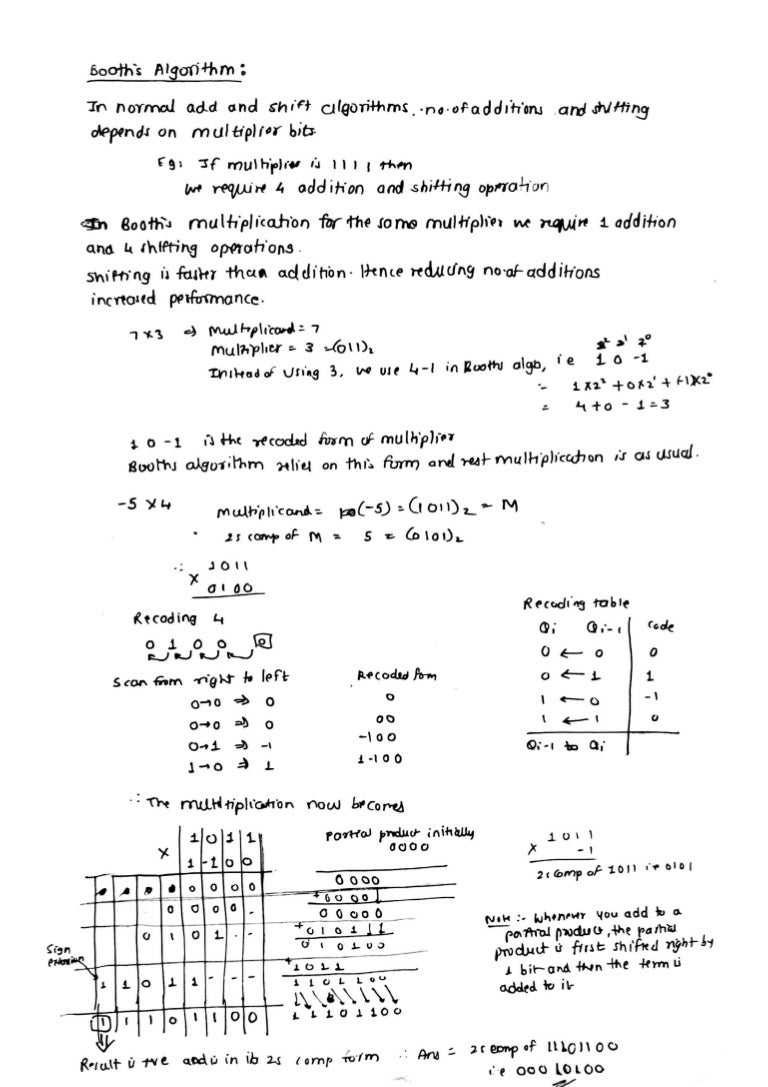 Booth's Algorithm:
In normal add and shift algorithms, no. of additions and shifting
depends on multiplier bits
Eg: If multiplier is 1111 then
we require 4 addition and shifting operation
In Booth's multiplication for the same multiplier we require 1 addition
and 4 shifting operations.
Shifting is faster than addition. Hence reducing no. of additions
increased performance.
7x3 ⇒ Multiplicand = 7
2² 2¹ 2⁰
Multiplier = 3 = (011)₂
Instead of using 3, we use 4-1 in Booths algo, i e 1 0 -1
= 1x2² + 0x2¹ + (-1)x2⁰
= 4+0-1=3
1 0 -1 is the recoded form of multiplier
Booths algorithm relies on this form and rest multiplication is as usual.
-5 x4 Multiplicand = (-5) = (1011)₂ = M
2s comp of M = 5 = (0101)₂
∴ 1011
x 0100
Recoding 4
0 1 0 0 0
Scan from right to left Recoded form
0→0 ⇒ 0 0
0→0 ⇒ 0 00
0→1 ⇒ -1 -100
1→0 ⇒ 1 1-100
Recoding table
Qi Qi-1 Code
0 ← 0 0
0 ← 1 1
1 ← 0 -1
1 ← 1 0
Qi-1 to Qi
∴ The multiplication now becomes
1 0 1 1
x 1 -1 0 0
0 0 0 0
0 0 0 0 -
0 0 1 0 1 - -
Sign
extension
1 1 0 1 1 - - -
1 1 1 0 1 1 0 0
Partial product initially
0000
0000
+0000
00000
+0101
010100
+1011
1101100
11101100
1011
x -1
2s comp of 1011 i e 0101
Note :- Whenever you add to a
partial product, the partial
product is first shifted right by
1 bit and then the term is
added to it
Result is +ve and is in its 2s comp form ∴ Ans = 2s comp of 11101100
i e 00010100